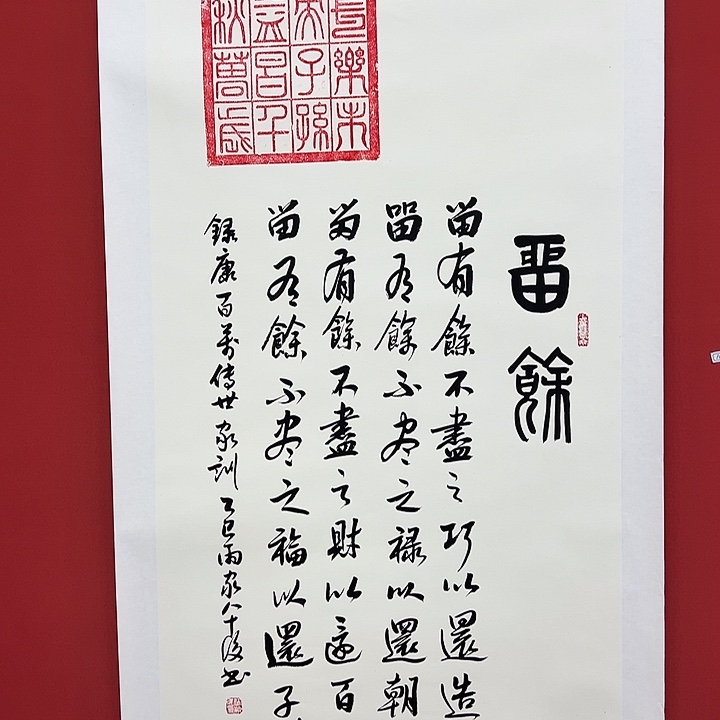 長樂未
央子孫
益昌千
秋萬歲
畱餘
留有餘不盡之巧以還造
留有餘不盡之祿以還朝
留有餘不盡之財以還百
留有餘不盡之福以還子
錄康百萬傳世家訓乙巳雨家八十後書